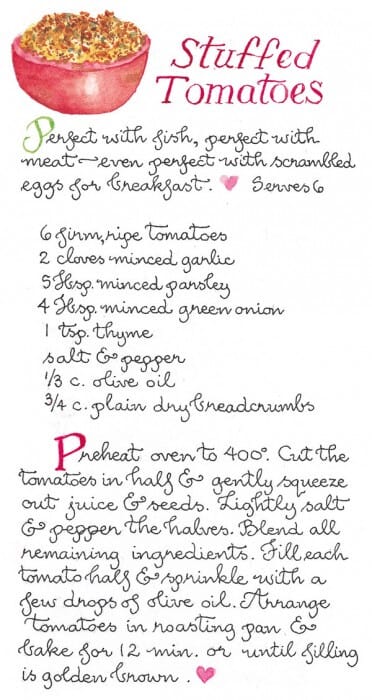 Stuffed
Tomatoes
Perfect with fish, perfect with
meat—even perfect with scrambled
eggs for breakfast. ♥ Serves 6
6 firm, ripe tomatoes
2 cloves minced garlic
5 Tbsp. minced parsley
4 Tbsp. minced green onion
1 tsp. thyme
salt & pepper
1/3 c. olive oil
3/4 c. plain dry breadcrumbs
Preheat oven to 400°. Cut the
tomatoes in half & gently squeeze
out juice & seeds. Lightly salt
& pepper the halves. Blend all
remaining ingredients. Fill each
tomato half & sprinkle with a
few drops of olive oil. Arrange
tomatoes in roasting pan &
bake for 12 min. or until filling
is golden brown. ♥